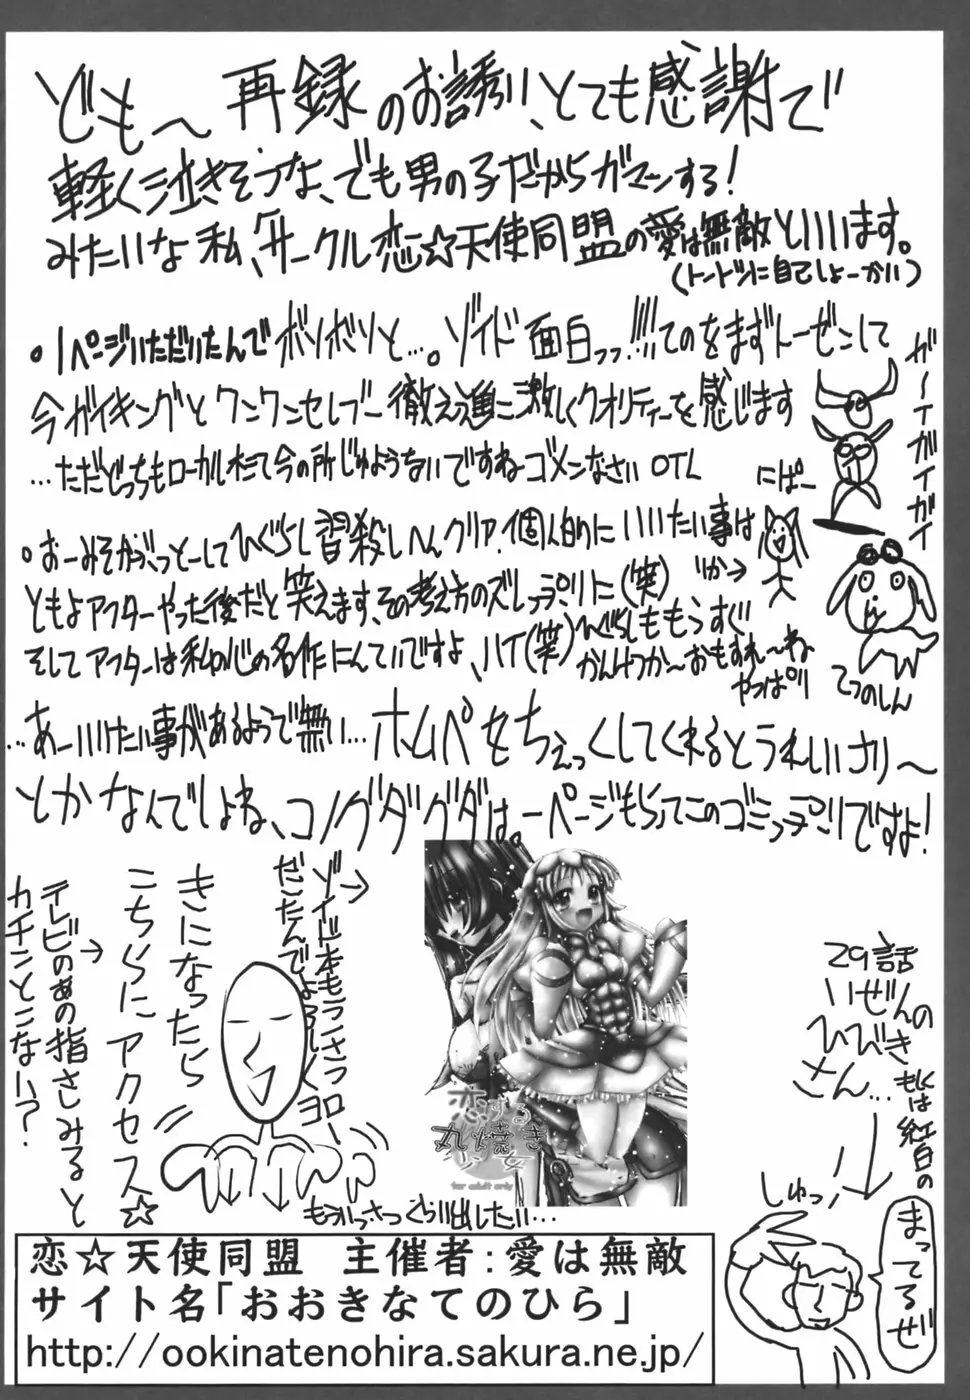 ども〜再録のお誘い、とても感謝で
軽く泣きそうな、でも男の子だからガマンする!
みたいな私、サークル恋☆天使同盟の愛は無敵といいます。
(トートツに自己しょーかい)
・1ページいただいたんでボソボソと…。ゾイド面白っっ!!!!てのをまずトーゼンして
今ガイキングとワンワンセレプー徹え道に激しくクオリティーを感じます
…ただどっちもローカルネタで今の所じゅようないですねゴメンなさいOTL
ガーイガイガイ
にぱー
・おーみそかぶっとーしでひぐらし皆殺しへんクリア、個人的にいいたい事は
ともよアフターやった後だと笑えます、その考え方のズレっプリに(笑)
そしてアフターは私の心の名作にんていですよ、ハイ(笑)
ひぐらしももうすぐ
かんけつか〜おもすれ〜ね
やっぱり
てつのしん
…あーいいたい事があるようで無い…ホムペをちぇっくしてくれるとうれしいさり〜
とかなんでしょね、コノグダグダは。一ページもらってこのゴミっプリですよ!
ゾイド本もラさっラ
だたんでよろしくヨロー
きになったら
こちらにアクセス☆
テレビのあの指さしみると
カチンとこない?
恋する
丸焼き
乙女
for adult only
もういっさつぐらい出したい…
29話
いぜんの
ひびき
さん…
もしくは紅白の
しゅっ!
まってるぜ
恋☆天使同盟　主催者:愛は無敵
サイト名「おおきなてのひら」
http://ookinatenohira.sakura.ne.jp/